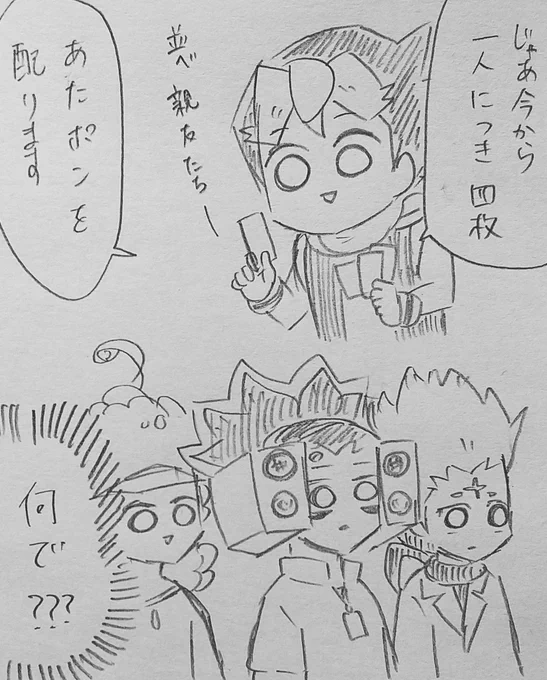 じゃあ今から
一人につき四枚
並べ親友たちー
あたポンを
配ります
何で???